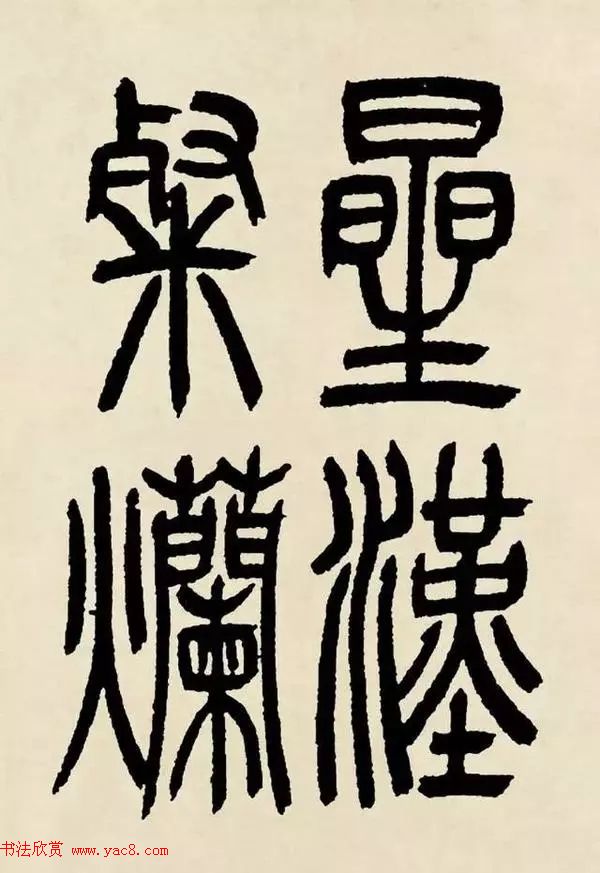 星漢
粲爛
书法欣赏 www.yac8.com